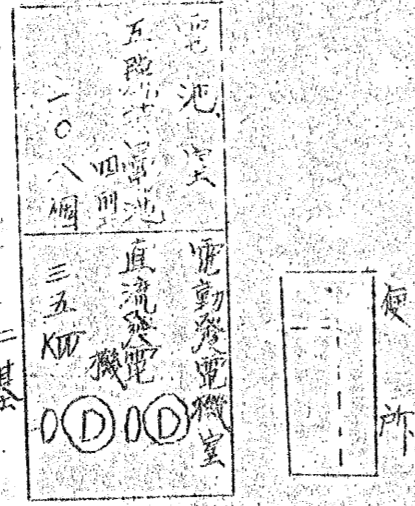 便所
電池室
五段式蓄電池
四列
一〇八個
電動發電機室
直流發電機
三五KW
D D
二基